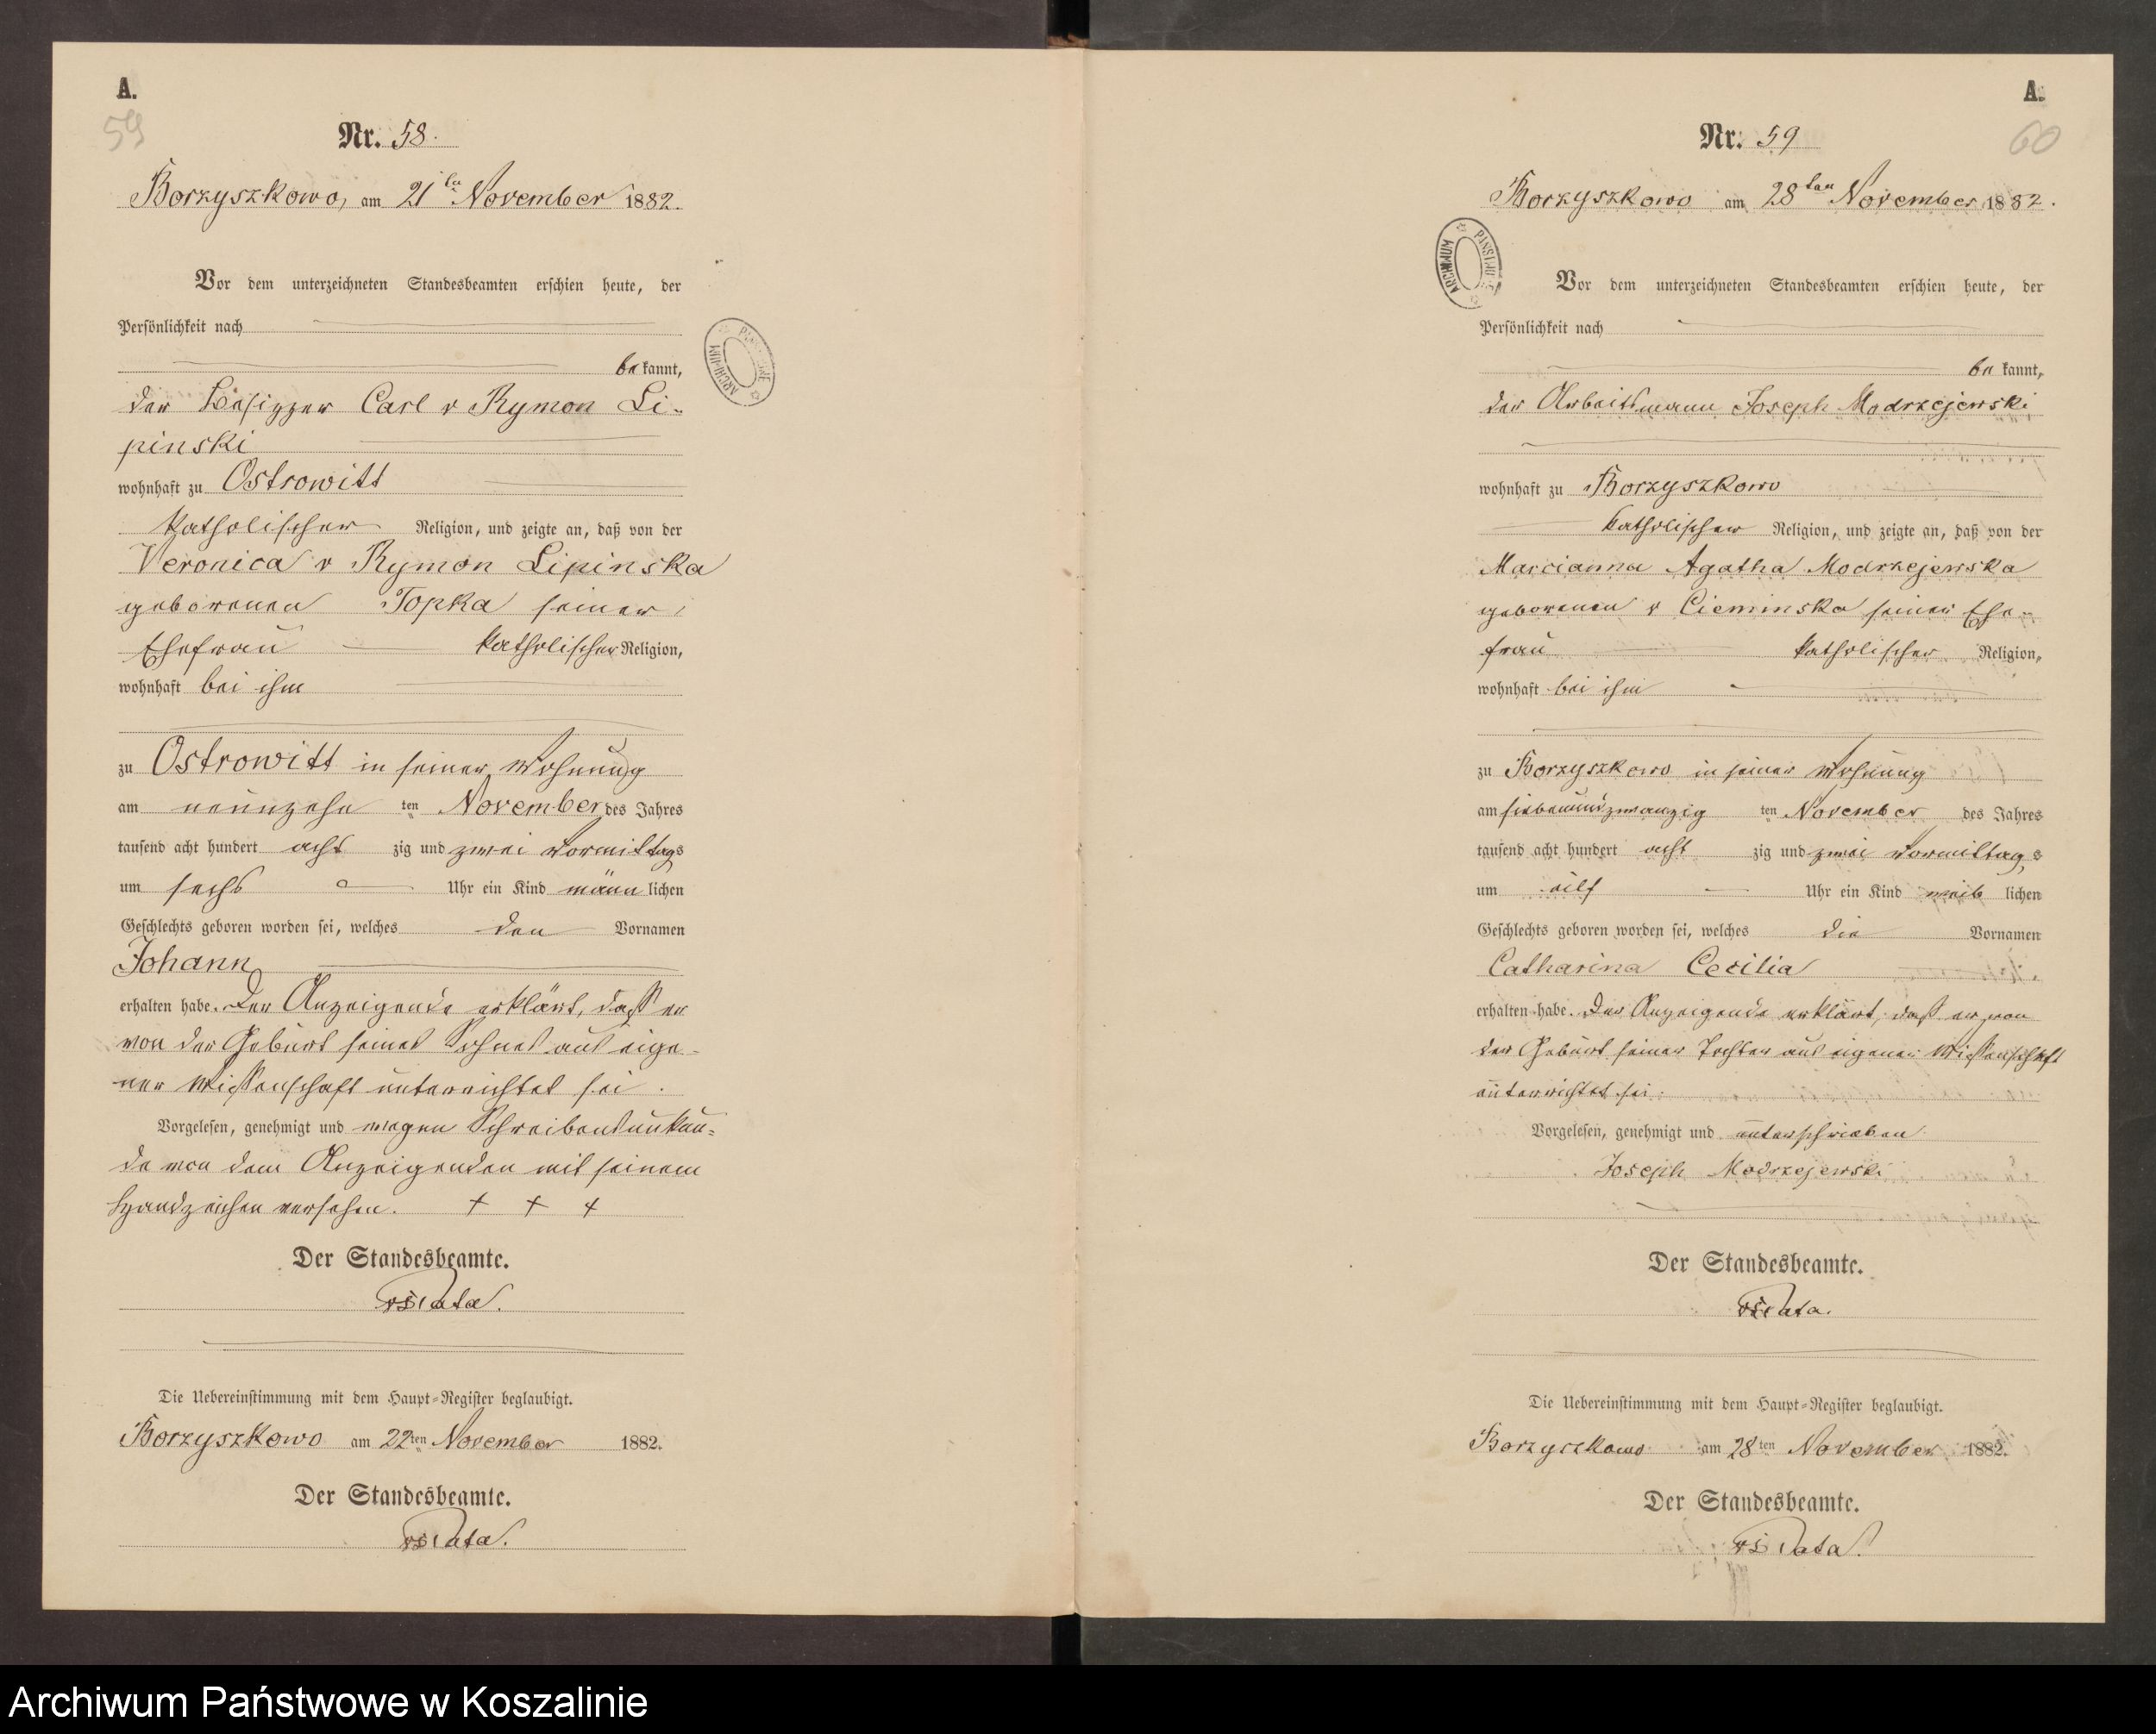 A.
59
Nr. 58.
Borzyszkowo, am 21ten November 1882.
Vor dem unterzeichneten Standesbeamten erschien heute, der
Persönlichkeit nach
be kannt,
der Besitzer Carl v Rymon Li-
pinski
wohnhaft zu Ostrowitt
katholischer Religion, und zeigte an, daß von der
Veronica v Rymon Lipinska
geborenen Topka seiner
Ehefrau katholischer Religion,
wohnhaft bei ihm
zu Ostrowitt in seiner Wohnung
am neunzehn ten November des Jahres
tausend acht hundert acht zig und zwei Vormittags
um sechs Uhr ein Kind männ lichen
Geschlechts geboren worden sei, welches den Vornamen
Johann
erhalten habe. Der Anzeigende erklärt, daß er
von der Geburt seines Sohnes aus eige-
ner Wissenschaft unterrichtet sei.
Vorgelesen, genehmigt und wegen Schreibensunkun-
de von dem Anzeigenden mit seinem
Handzeichen versehen. + + +
Der Standesbeamte.
Die Uebereinstimmung mit dem Haupt-Register beglaubigt.
Borzyszkowo am 22ten November 1882.
Der Standesbeamte.
ARCHIWUM PAŃSTWOWE
A.
60
Nr. 59
Borzyszkowo am 28ten November 1882.
ARCHIWUM PAŃSTWOWE
Vor dem unterzeichneten Standesbeamten erschien heute, der
Persönlichkeit nach
be kannt,
der Arbeitsmann Joseph Modrzejewski
wohnhaft zu Borzyszkowo
katholischer Religion, und zeigte an, daß von der
Marcianna Agatha Modrzejewska
geborenen v Cieminska seiner Ehe-
frau katholischer Religion,
wohnhaft bei ihm
zu Borzyszkowo in seiner Wohnung
am siebenundzwanzig ten November des Jahres
tausend acht hundert acht zig und zwei Vormittags
um eilf Uhr ein Kind weib lichen
Geschlechts geboren worden sei, welches die Vornamen
Catharina Cecilia
erhalten habe. Der Anzeigende erklärt, daß er von
der Geburt seiner Tochter aus eigener Wissenschaft
unterrichtet sei.
Vorgelesen, genehmigt und unterschrieben
Joseph Modrzejewski
Der Standesbeamte.
Die Uebereinstimmung mit dem Haupt-Register beglaubigt.
Borzyszkowo am 28ten November 1882.
Der Standesbeamte.
Archiwum Państwowe w Koszalinie